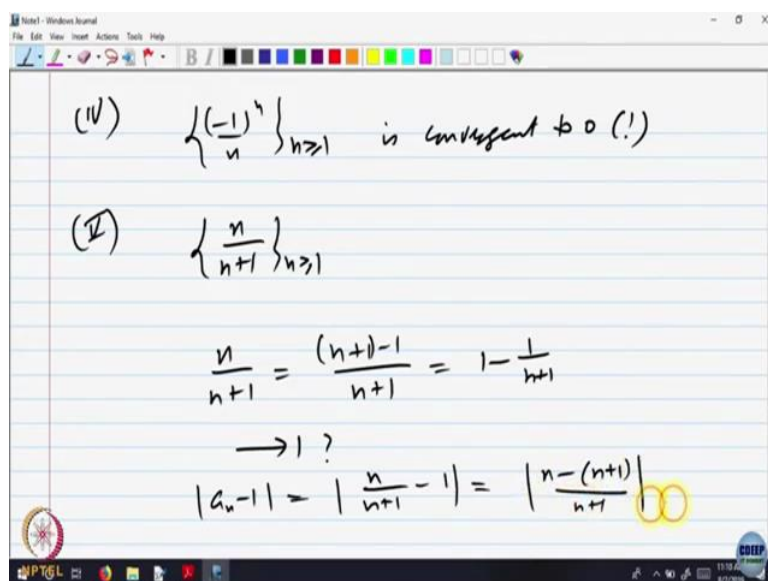 Note1 - Windows Journal
File Edit View Insert Actions Tools Help
B I
(IV) {(-1)^n/n}_{n≥1} is convergent to 0 (!)
(V) {n/(n+1)}_{n≥1}
n/(n+1) = ((n+1)-1)/(n+1) = 1 - 1/(n+1)
⟶ 1 ?
|a_n - 1| = |n/(n+1) - 1| = |(n-(n+1))/(n+1)|
NPTEL
CDEEP